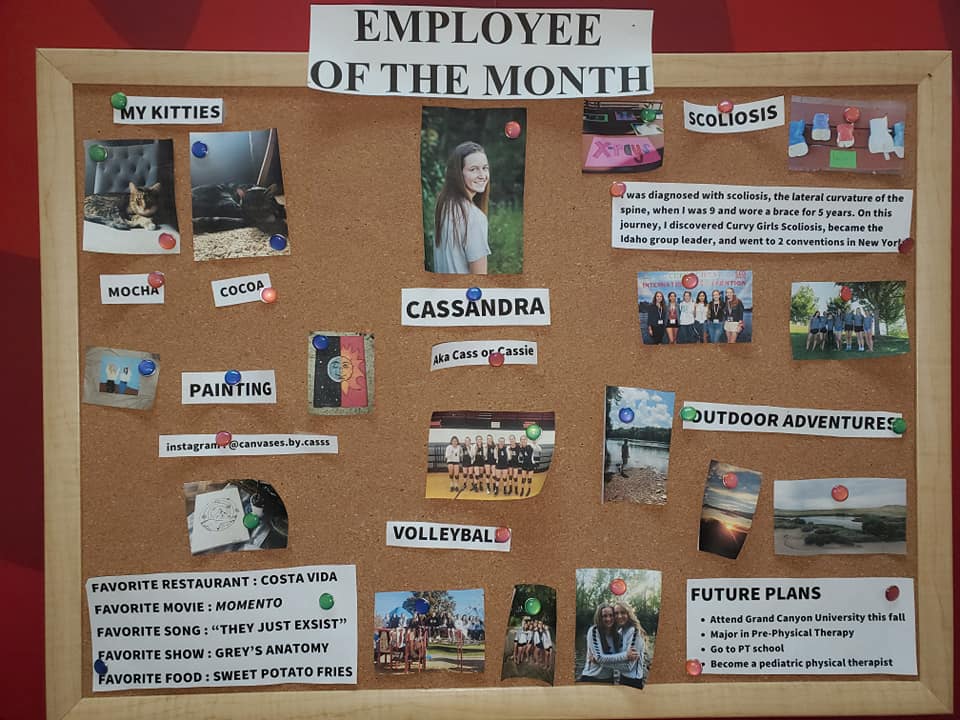 EMPLOYEE
OF THE MONTH
MY KITTIES
MOCHA
COCOA
PAINTING
instagram : @canvases.by.casss
CASSANDRA
Aka Cass or Cassie
VOLLEYBALL
X-rays
SCOLIOSIS
I was diagnosed with scoliosis, the lateral curvature of the
spine, when I was 9 and wore a brace for 5 years. On this
journey, I discovered Curvy Girls Scoliosis, became the
Idaho group leader, and went to 2 conventions in New York
INTERNATIONAL CONVENTION
OUTDOOR ADVENTURES
FAVORITE RESTAURANT : COSTA VIDA
FAVORITE MOVIE : MOMENTO
FAVORITE SONG : “THEY JUST EXSIST”
FAVORITE SHOW : GREY’S ANATOMY
FAVORITE FOOD : SWEET POTATO FRIES
FUTURE PLANS
• Attend Grand Canyon University this fall
• Major in Pre-Physical Therapy
• Go to PT school
• Become a pediatric physical therapist